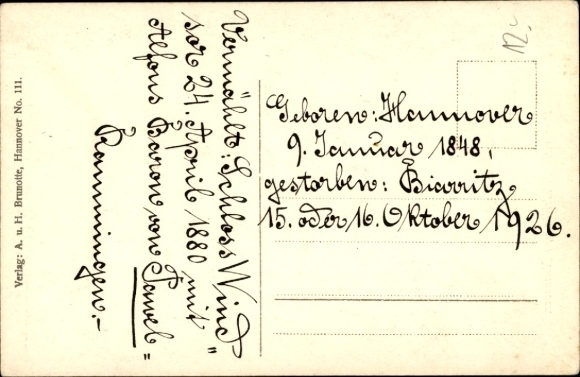 Verlag: A. u. H. Brunotte, Hannover No. 111.
Vermählt: Schloss Wind„
sor 24. April 1880 mit
Alfons Baron von Pawel„
Rammingen.-
Geboren: Hannover
9. Januar 1848,
gestorben: Biarritz
15. oder 16. Oktober 1926.
12.-